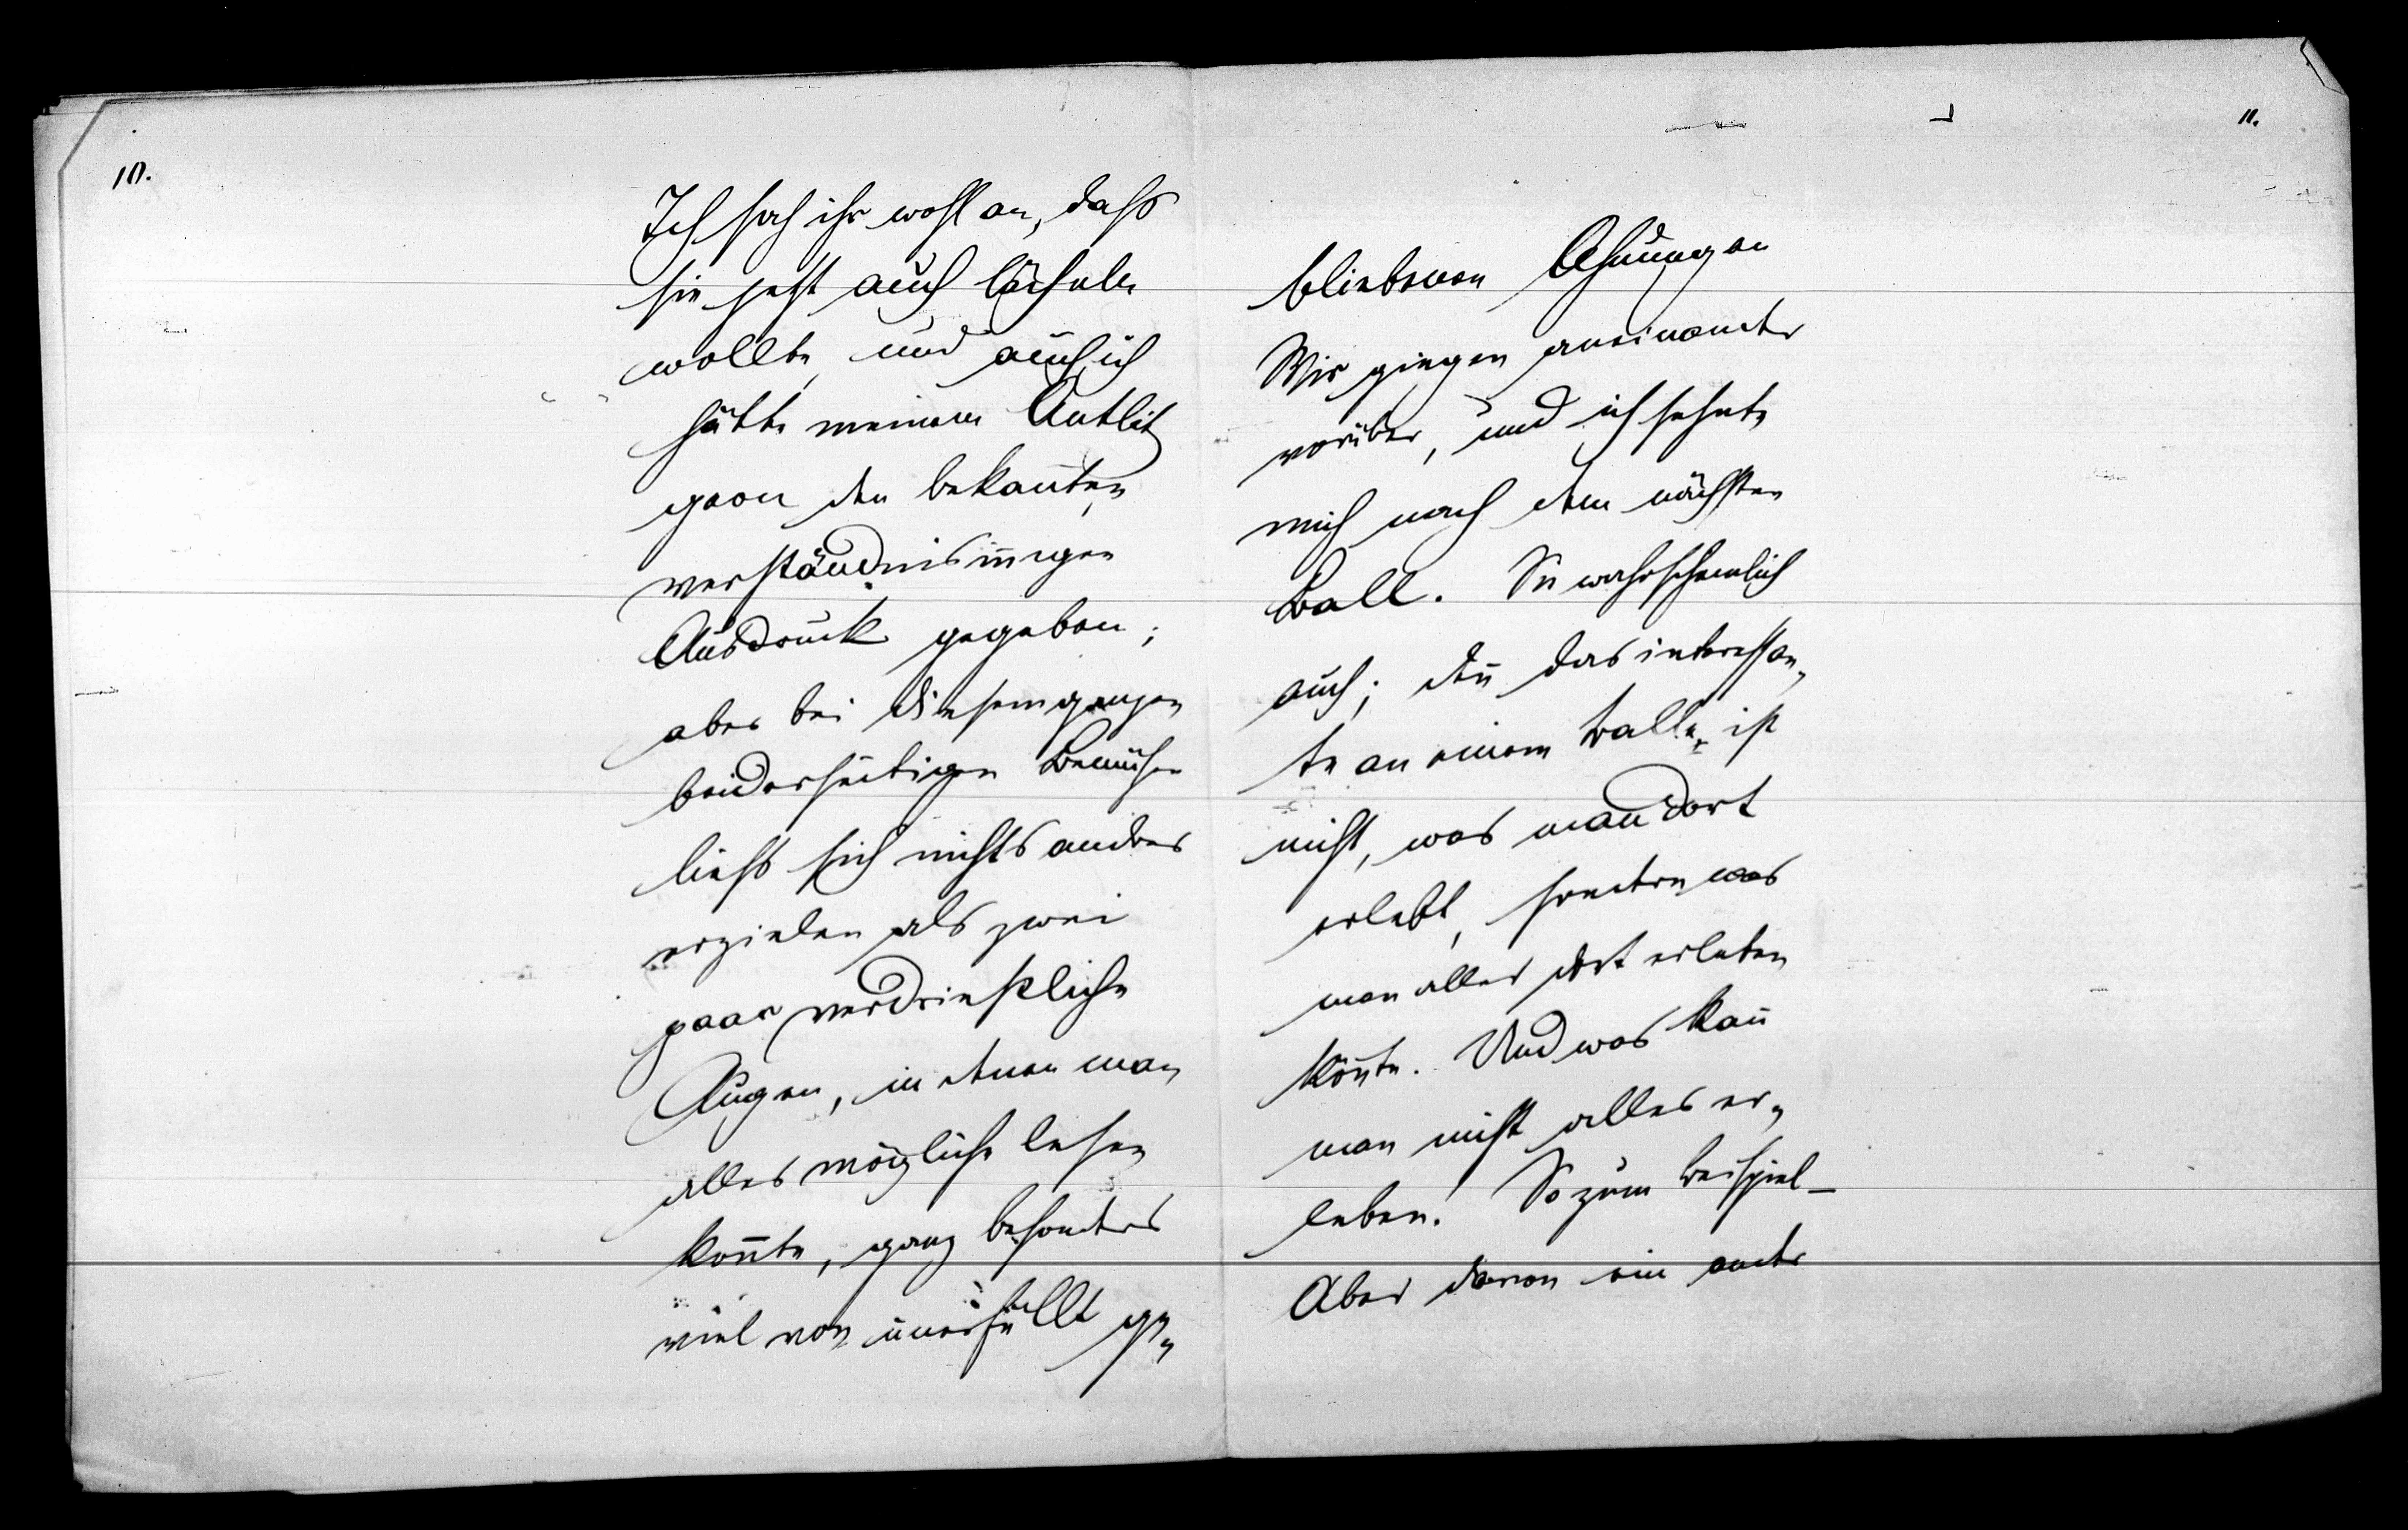 10.
Ich sah ihr wohl an, dass
sie jetzt auch lächeln
wollte, und auch ich
hätte meinem Antlitz
gern den bekan̄ten,
verständnisin̄igen
Ausdruck gegeben;
aber bei diesem ganzen
beiderseitigen Bemühen
liess sich nichts andres
erzielen als zwei
paar verdriessliche
Augen, in denen man
alles mögliche lesen
kon̄te, ganz besonders
viel von unerfüllt ge-
11.
bliebenen Ahnungen
Wir gingen aneinander
vorüber, und ich sehnte
mich nach dem nächsten
Ball. Sie wahrscheinlich
auch; den̄ das interessan-
te an einem Balle ist
nicht, was man dort
erlebt, sondern was
man alles dort erleben
kön̄te. Und was kan̄
man nicht alles er-
leben! So zum Beispiel –
Aber davon ein ander